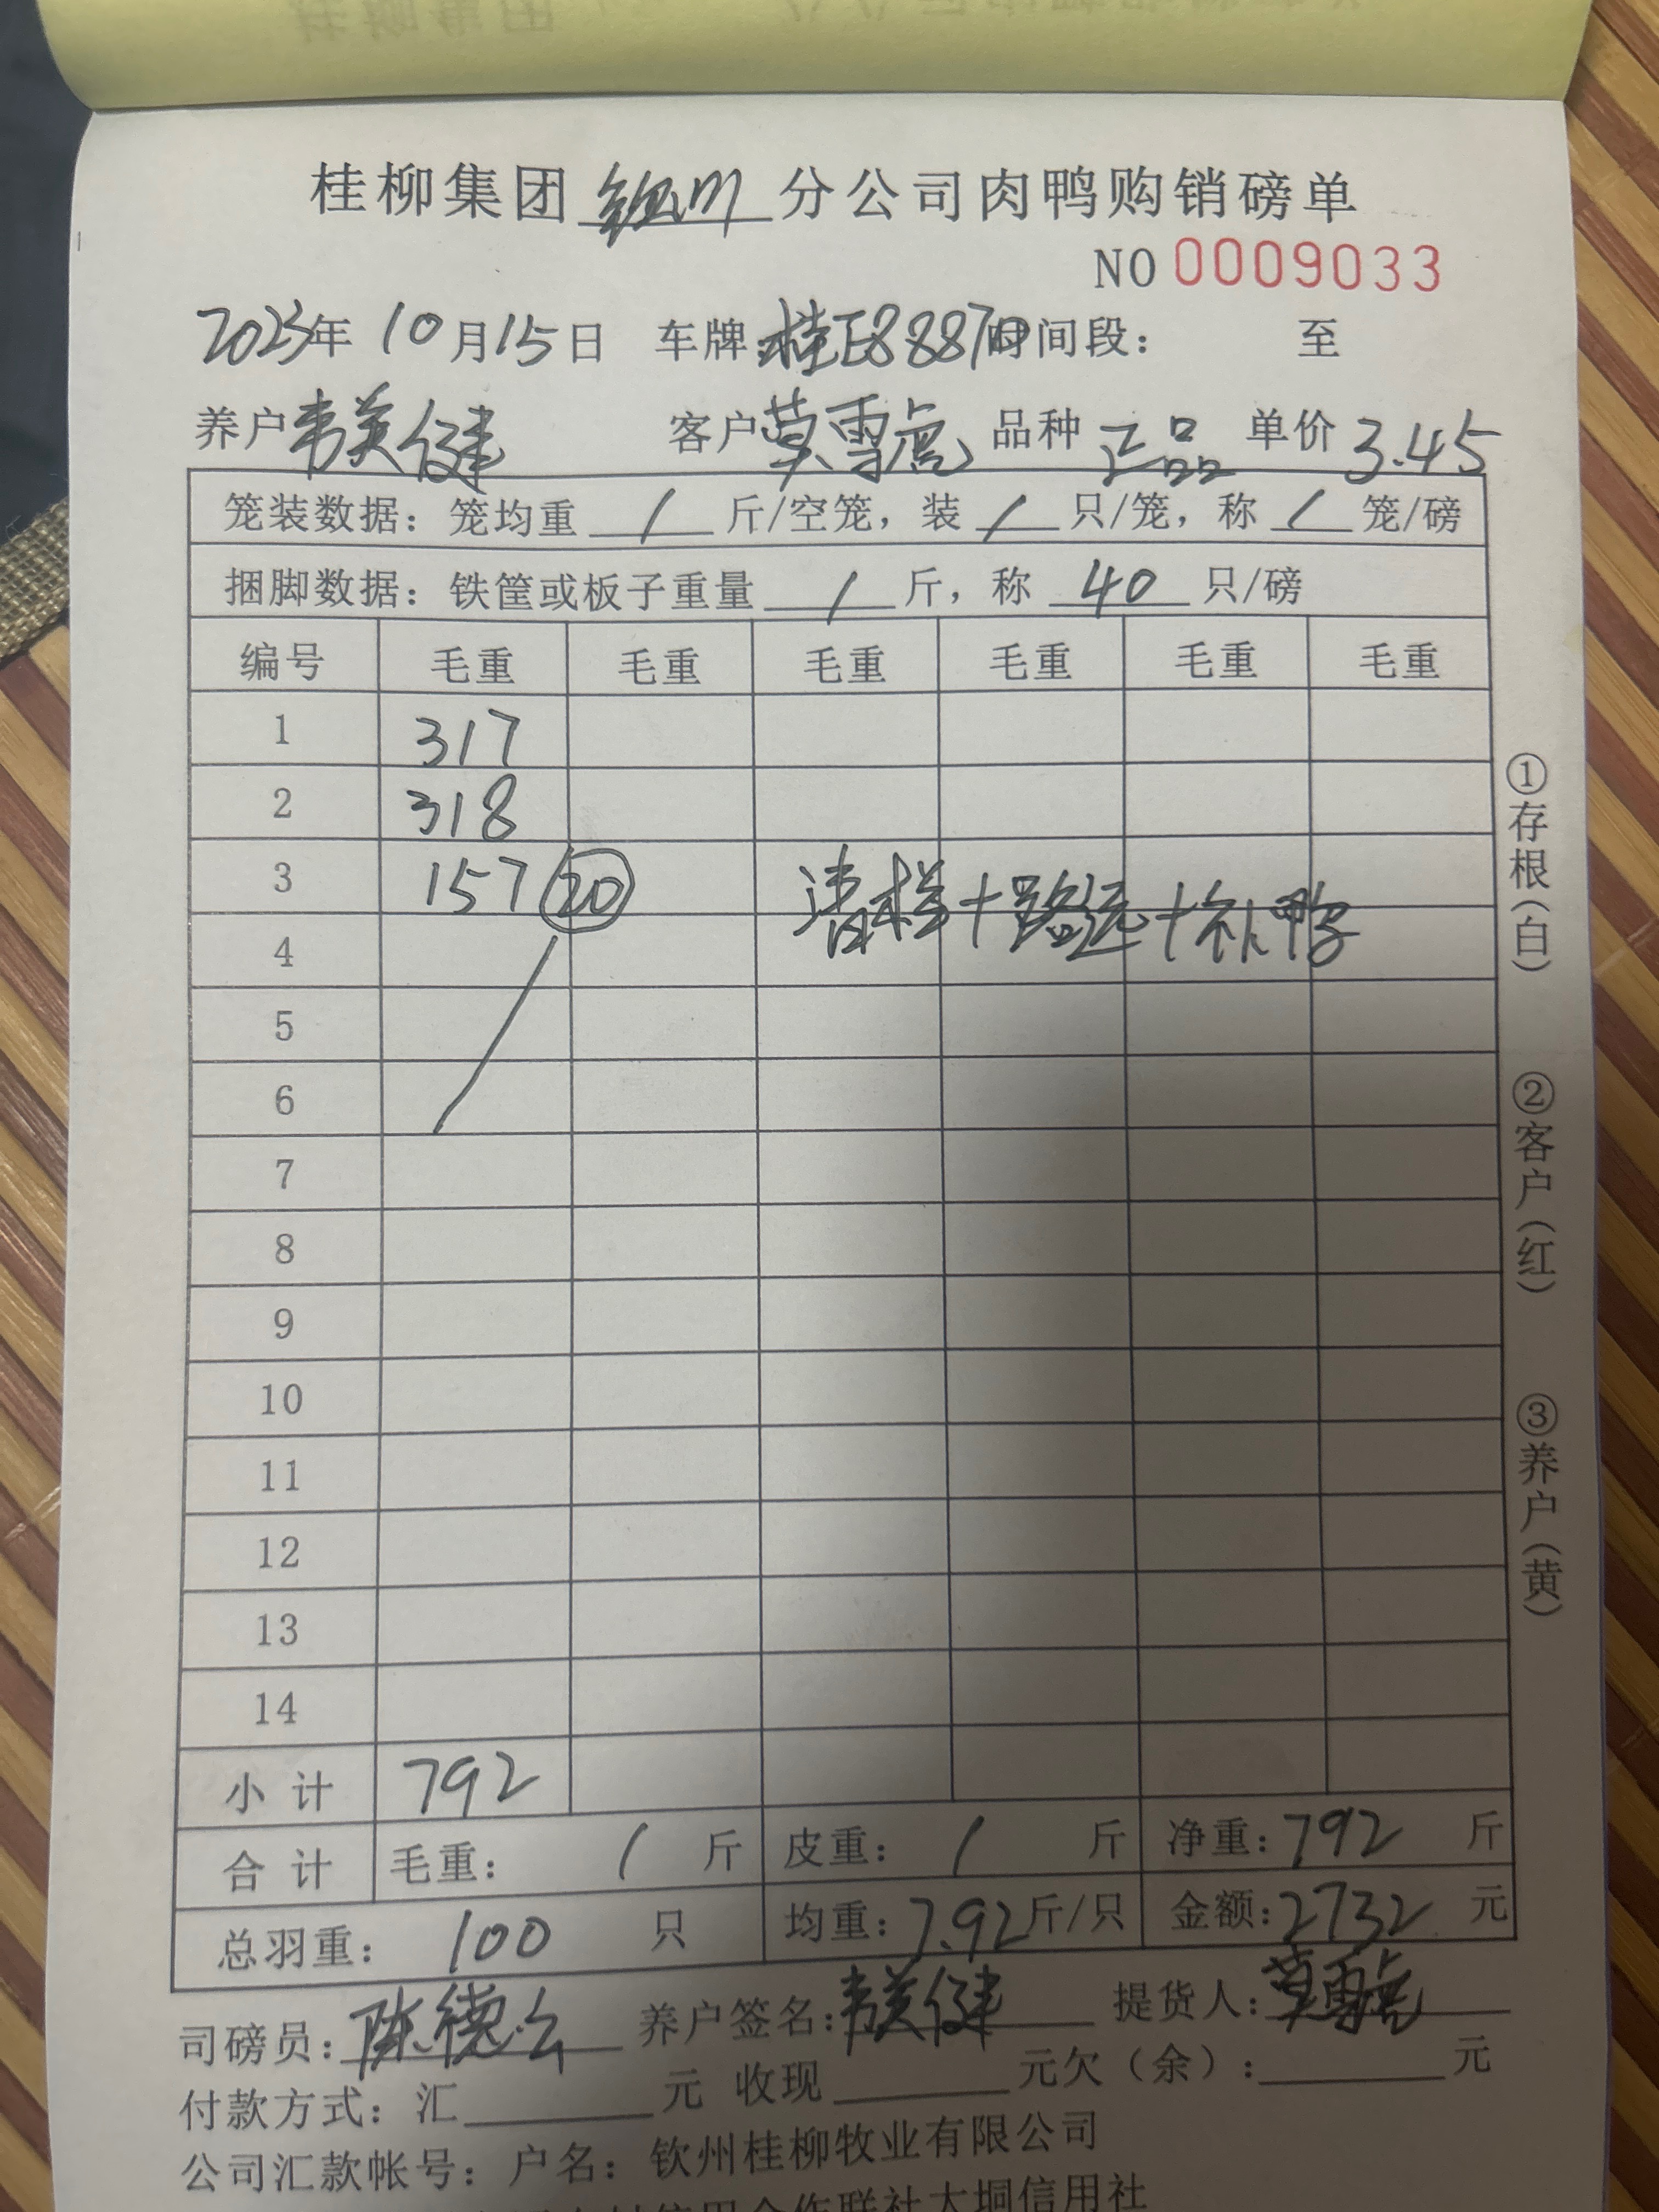 桂柳集团 钦州 分公司肉鸭购销磅单
NO 0009033
2023年 10月15日 车牌:桂E8887 时间段: 至
养户 韦美健 客户 莫雪 品种 正品 单价 3.45
笼装数据: 笼均重 / 斤/空笼, 装 / 只/笼, 称 / 笼/磅
捆脚数据: 铁筐或板子重量 / 斤, 称 40 只/磅
编号 毛重 毛重 毛重 毛重 毛重 毛重
1 317
2 318
3 157 20
清栏+路远+补鸭
4
5
6
7
8
9
10
11
12
13
14
小计 792
合计 毛重: / 斤 皮重: / 斤 净重: 792 斤
总羽重: 100 只 均重: 7.92 斤/只 金额: 2732 元
司磅员: 陈德 养户签名: 韦美健 提货人: 莫雪
付款方式: 汇 元 收现 元欠(余): 元
公司汇款帐号: 户名: 钦州桂柳牧业有限公司
合作联社大垌信用社
①存根(白)
②客户(红)
③养户(黄)